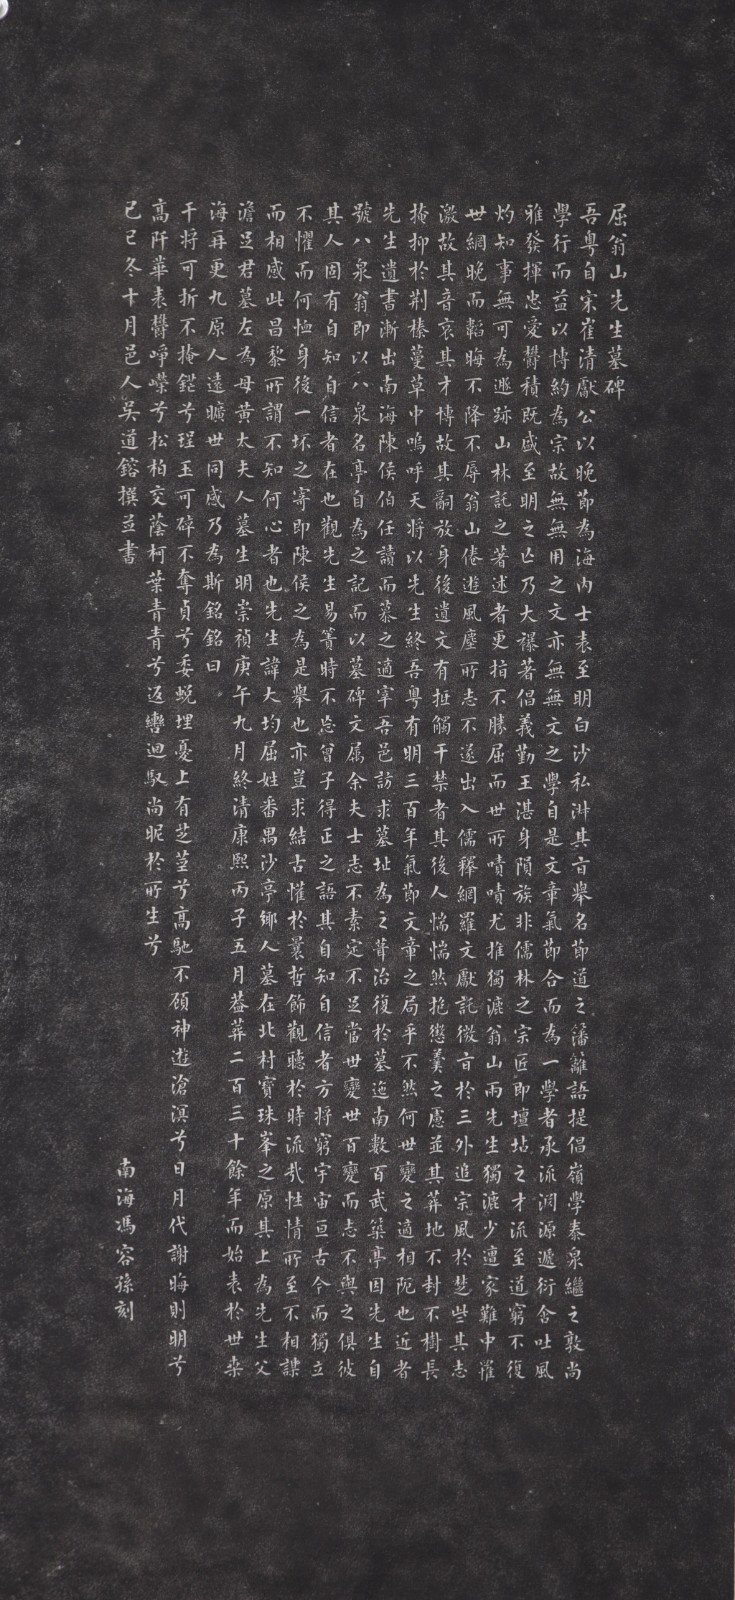 屈翁山先生墓碑
吾粵自宋崔清獻公以晚節為海內士表至明白沙私淑其旨舉名節道之藩籬語提倡嶺學泰泉繼之敦尚
學行而益以博約為宗故無無用之文亦無無文之學自是文章氣節合而為一學者承流溯源遞衍含吐風
雅發揮忠愛鬱積既盛至明之亡乃大襮著倡義勤王湛身隕族非儒林之宗匠即壇坫之才流至道窮不復
灼知事無可為遯跡山林託之著述者更指不勝屈而世所嘖嘖尤推獨漉翁山兩先生獨漉少遭家難中罹
世網晚而韜晦不降不辱翁山倦遊風塵所志不遂出入儒釋網羅文獻託微旨於三外追宗風於楚些其志
激故其音哀其才博故其嗣放身後遺文有牴觸干禁者其後人惴惴然抱懲羹之慮並其葬地不封不樹長
掩抑於荆榛蔓草中嗚呼天將以先生終吾粵有明三百年氣節文章之局乎不然何世變之適相阨也近者
先生遺書漸出南海陳侯伯任讀而慕之適宰吾邑訪求墓址為之葺治復於墓迤南數百武築亭因先生自
號八泉翁即以八泉名亭自為之記而以墓碑文屬余夫士志不素定不足當世變世百變而志不與之俱彼
其人固有自知自信者在也觀先生易簀時不忘曾子得正之語其自知自信者方將窮宇宙亘古今而獨立
不懼而何恤身後一坏之寄即陳侯之為是舉也亦豈求結古懽於曩哲飾觀聽於時流哉性情所至不相謀
而相感此昌黎所謂不知何心者也先生諱大均屈姓番禺沙亭鄉人墓在北村寶珠峯之原其上為先生父
澹足君墓左為母黃太夫人墓生明崇禎庚午九月終清康熙丙子五月葢葬二百三十餘年而始表於世桒
海再更九原人遠曠世同感乃為斯銘銘曰
干將可折不掩鋩兮珵玉可碎不奪貞兮委蛻埋憂上有芝莖兮高馳不顧神遊滄溟兮日月代謝晦則明兮
高阡華表鬱崢嶸兮松柏交蔭柯葉青青兮返轡迴馭尚昵於所生兮
己巳冬十月邑人吳道鎔撰並書
南海馮容孫刻